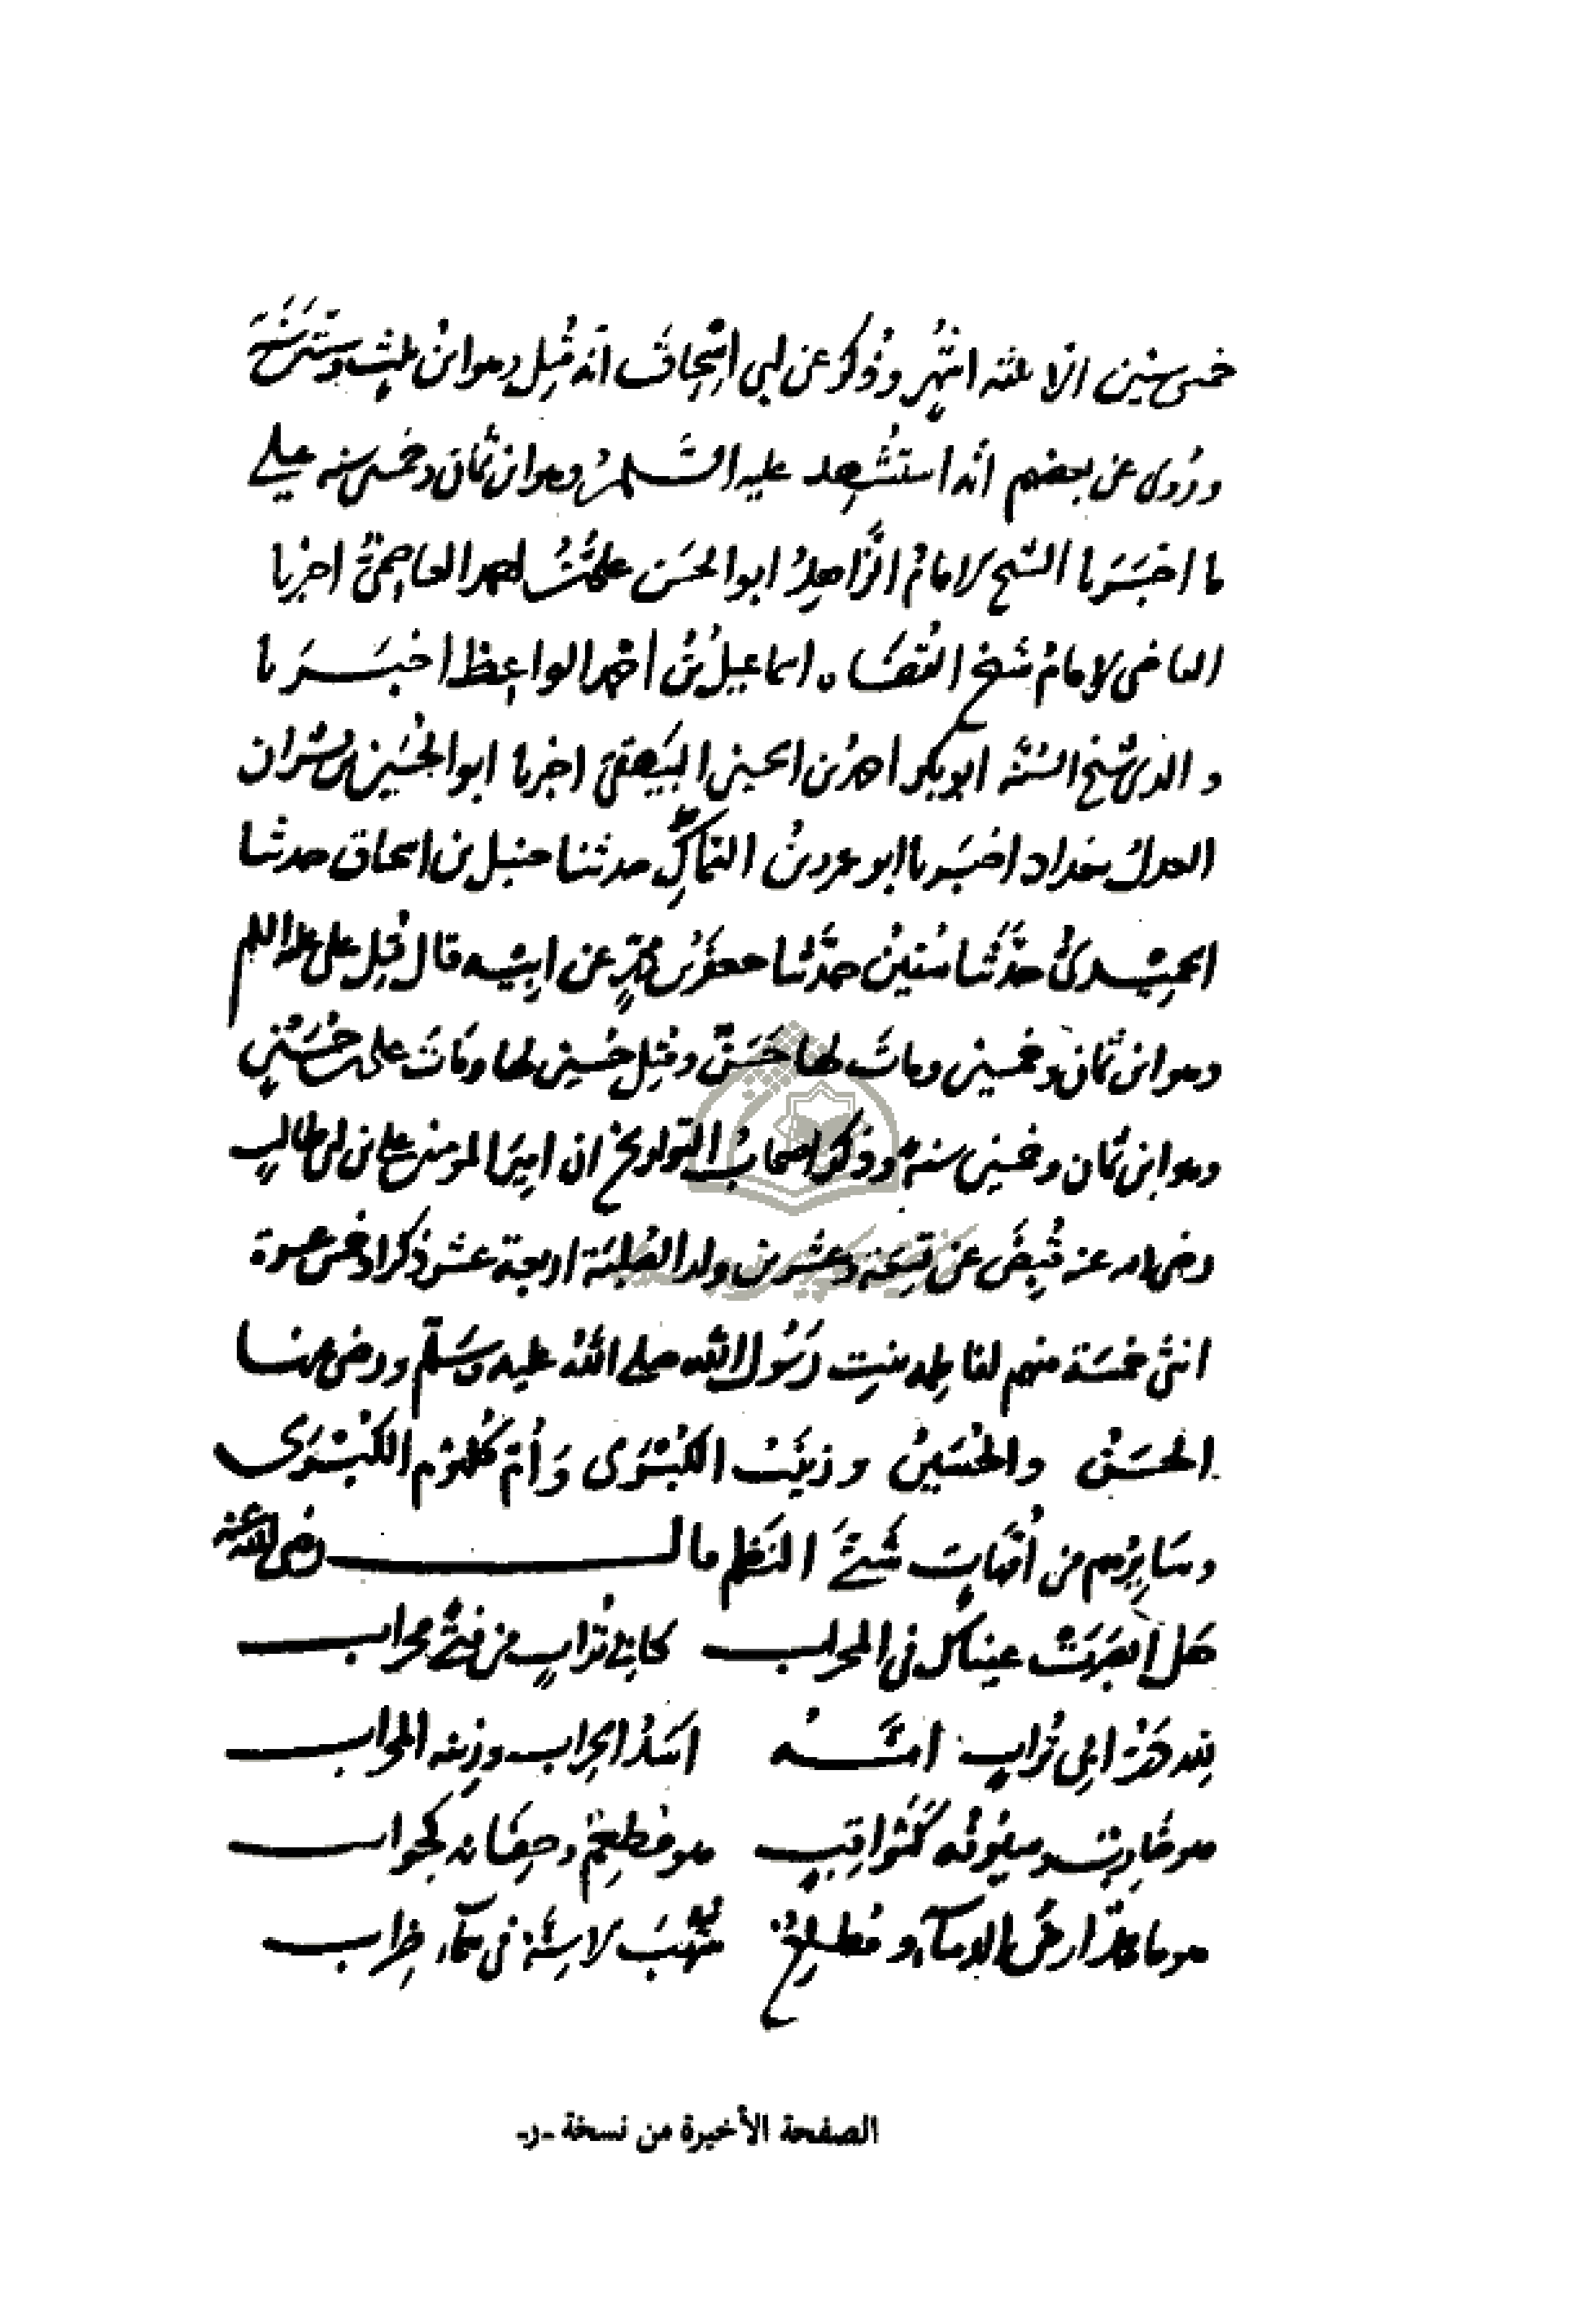 خمس سنين الا ثلثه اشهر وذكر عن ابي اسحاق انه قتل وهو ابن ثلث وستين سنة
وروى عن بعضهم انه استشهد عليه السلم وهو ابن ثمان وخمسين سنه على
ما اخبرنا الشيخ الامام الزاهد ابو الحسن على بن احمد العاصمي اخبرنا
القاضى الامام شيخ القضاه اسماعيل بن احمد الواعظ اخبرنا
والدى شيخ السنة ابو بكر احمد بن الحسين البيهقي اخبرنا ابو الحسين بن بشران
العدل ببغداد اخبرنا ابو عمرو بن السماك حدثنا حنبل بن اسحاق حدثنا
الحميدى حدثنا سفين حدثنا جعفر بن محمد عن ابيه قال قتل على عليه السلم
وهو ابن ثمان وخمسين ومات لها حسن وقتل حسين لها ومات على بن حسين
وهو ابن ثمان وخمسين سنة وذكر اصحاب التواريخ ان امير المومنين على بن ابى طالب
رضى الله عنه قبض عن تسعة وعشرين ولد الصلبه اربعة عشر ذكرا وخمس عشرة
انثى خمسة منهم لفاطمه بنت رسول الله صلى الله عليه وسلم ورضى عنها
الحسن والحسين وزينب الكبرى وام كلثوم الكبرى
وسايرهم من امهات شتى النظم قال رضى الله عنه
هل ابصرت عيناك في المحراب كابي تراب من فتى محراب
لله در ابي تراب انه اسد الحراب وزينه المحراب
هو ضارب وسيوفه كثواقب هو مطعم وجفانه كجواب
هو ارض الدماء ومطلع شهب الاسنة في سماء ضراب
الصفحة الأخيرة من نسخة -ر-